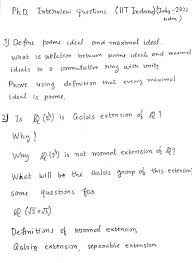 Ph.D. Interview Questions (IIT Indore) (July-2022
adm.)
1) Define prime ideal and maximal ideal.
What is relation between prime ideal and maximal
ideals in a commutative ring with unity.
Prove using definition that every maximal
ideal is prime.
2) Is Galois extension of Q ?
Why ?
Why is not normal extension of Q ?
What will be the Galois group of this extension
same questions for
Q (√2+√3)
Definitions of Normal extension,
Galois extension, separable extension.